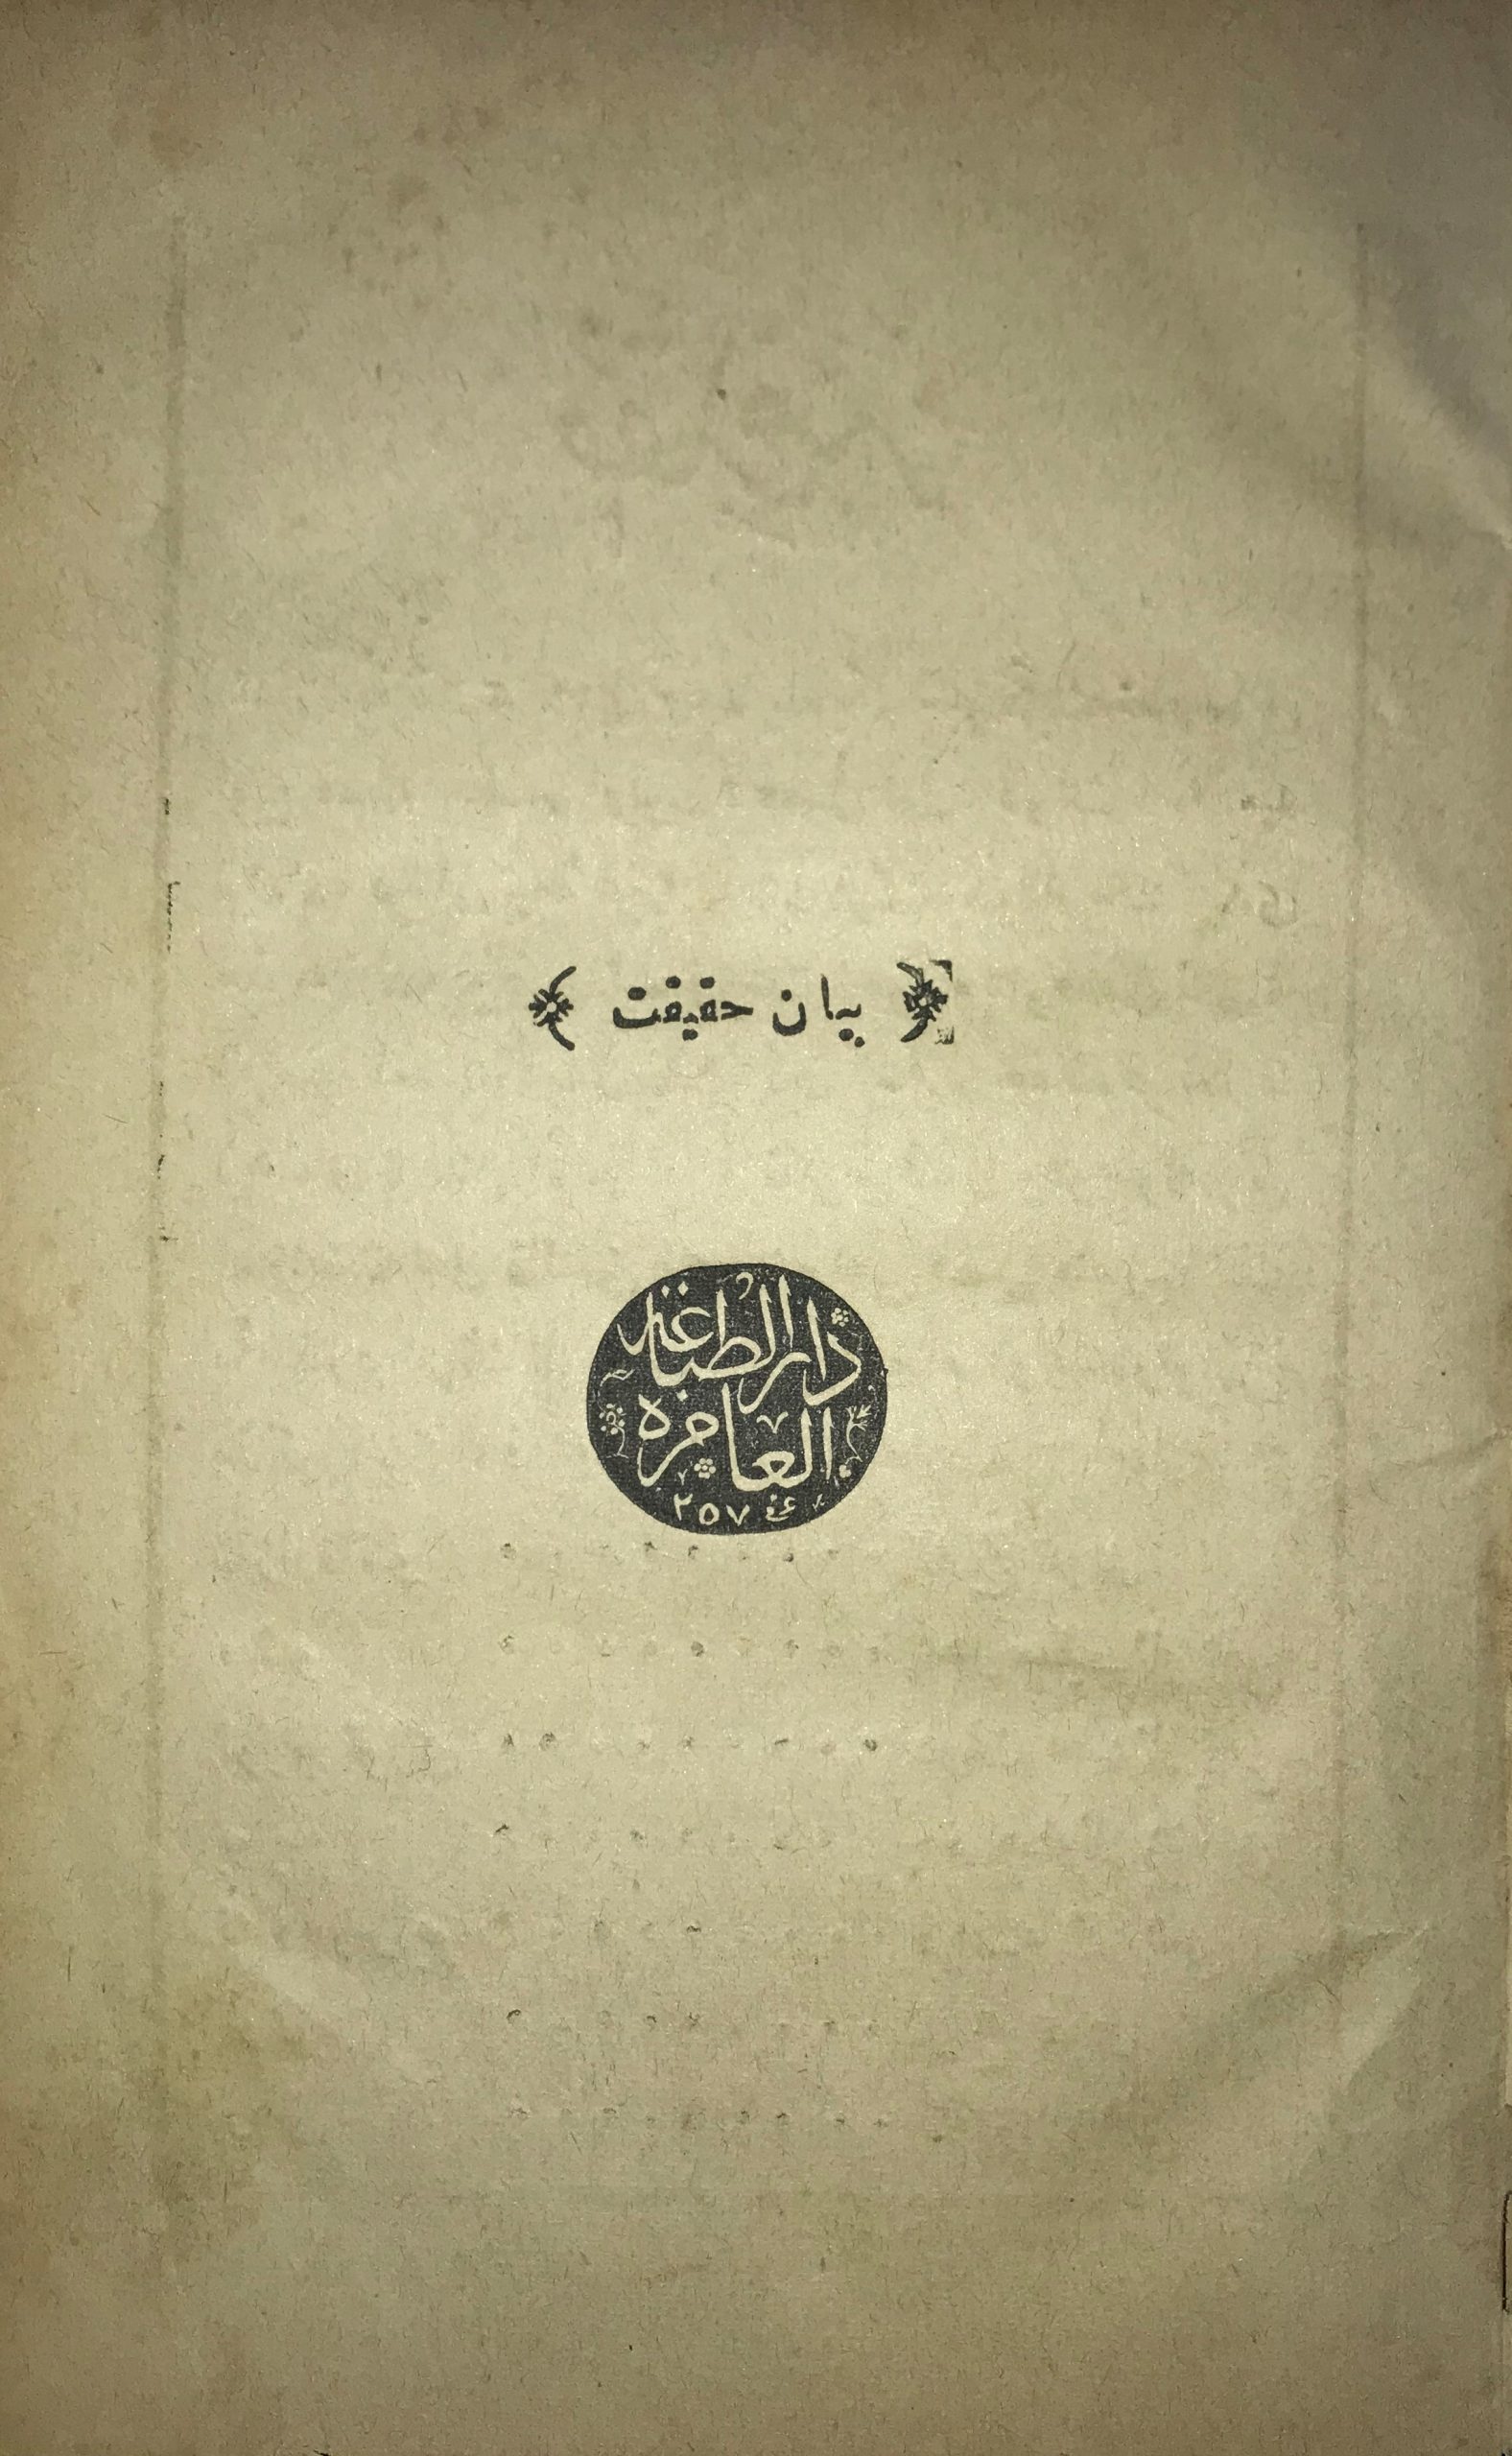 بيان حقيقت
دار الطباعة
العامره
٢٥٧